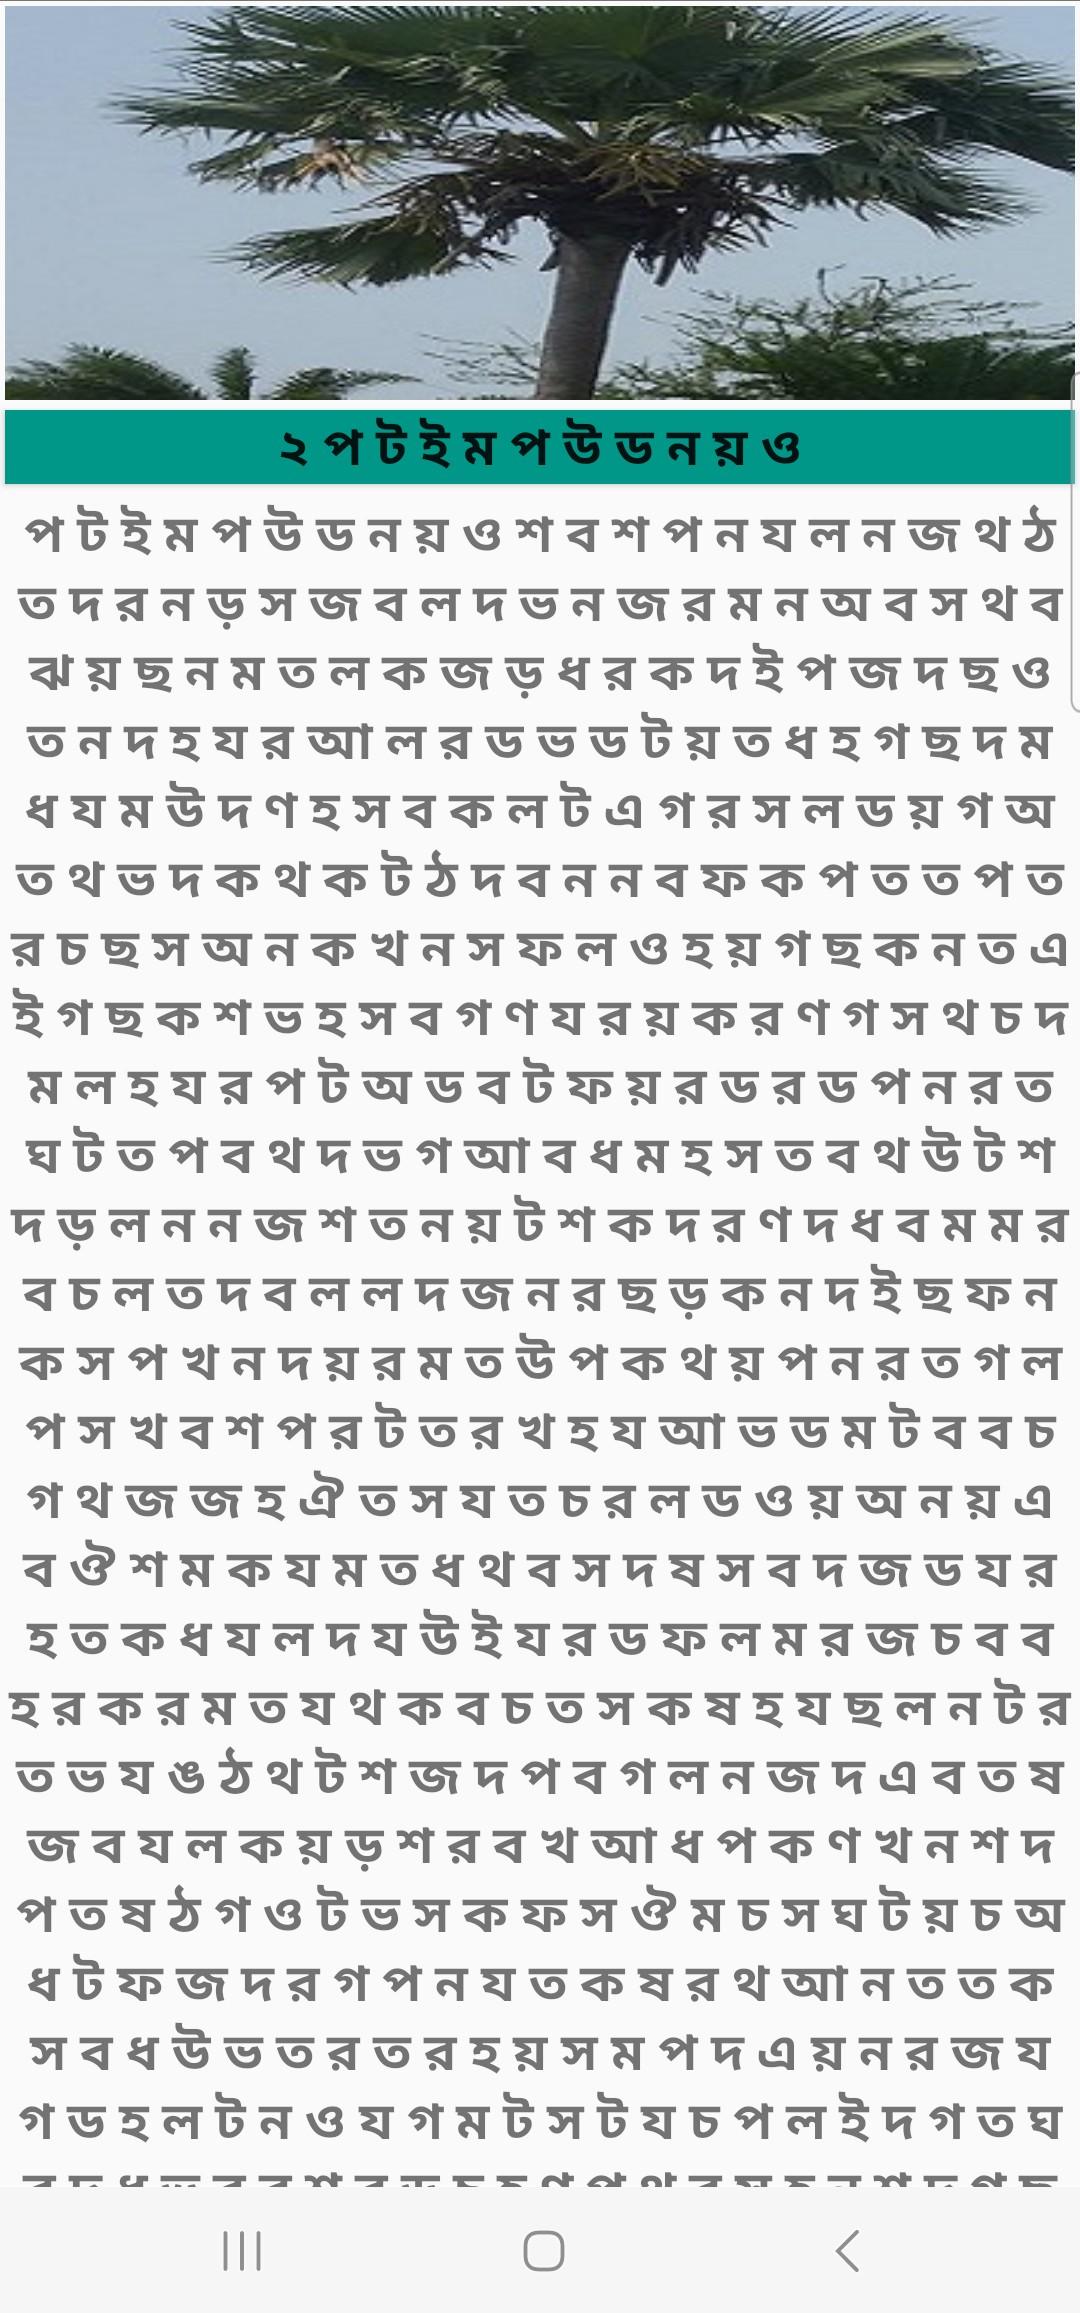 ২ প ট ই ম প উ ড ন য় ও
প ট ই ম প উ ড ন য় ও শ ব শ প ন য ল ন জ থ ঠ
ত দ র ন ড় স জ ব ল দ ভ ন জ র ম ন অ ব স থ ব
ঝ য় ছ ন ম ত ল ক জ ড় ধ র ক দ ই প জ দ ছ ও
ত ন দ হ য র আ ল র ড ভ ড ট য় ত ধ হ গ ছ দ ম
ধ য ম উ দ ণ হ স ব ক ল ট এ গ র স ল ড য় গ অ
ত থ ভ দ ক থ ক ট ঠ দ ব ন ন ব ফ ক প ত ত প ত
র চ ছ স অ ন ক খ ন স ফ ল ও হ য় গ ছ ক ন ত এ
ই গ ছ ক শ ভ হ স ব গ ণ য র য় ক র ণ গ স থ চ দ
ম ল হ য র প ট অ ড ব ট ফ য় র ড র ড প ন র ত
ঘ ট ত প ব থ দ ভ গ আ ব ধ ম হ স ত ব থ উ ট শ
দ ড় ল ন ন জ শ ত ন য় ট শ ক দ র ণ দ ধ ব ম ম র
ব চ ল ত দ ব ল ল দ জ ন র ছ ড় ক ন দ ই ছ ফ ন
ক স প খ ন দ য় র ম ত উ প ক থ য় প ন র ত গ ল
প স খ ব শ প র ট ত র খ হ য আ ভ ড ম ট ব ব চ
গ থ জ জ হ ঐ ত স য ত চ র ল ড ও য় অ ন য় এ
ব ঔ শ ম ক য ম ত ধ থ ব স দ ষ স ব দ জ ড য র
হ ত ক ধ য ল দ য উ ই য র ড ফ ল ম র জ চ ব ব
হ র ক র ম ত য থ ক ব চ ত স ক ষ হ য ছ ল ন ট র
ত ভ য ঙ ঠ থ ট শ জ দ প ব গ ল ন জ দ এ ব ত ষ
জ ব য ল ক য় ড় শ র ব খ আ ধ প ক ণ খ ন শ দ
প ত ষ ঠ গ ও ট ভ স ক ফ স ঔ ম চ স ঘ ট য় চ অ
ধ ট ফ জ দ র গ প ন য ত ক ষ র থ আ ন ত ত ক
স ব ধ উ ভ ত র ত র হ য় স ম প দ এ য় ন র জ য
গ ড হ ল ট ন ও য গ ম ট স ট য চ প ল ই দ গ ত ঘ